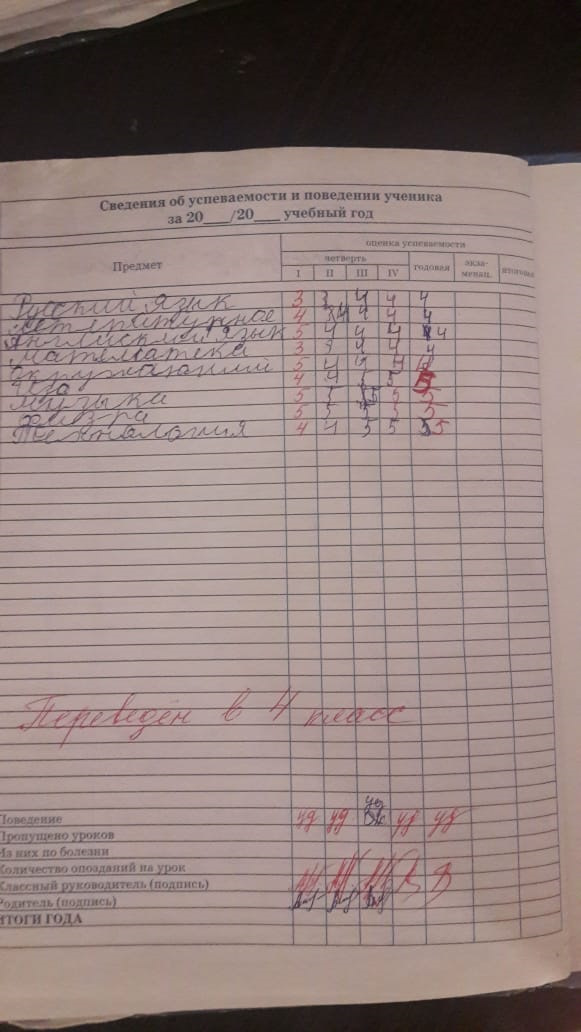 Сведения об успеваемости и поведении ученика
за 20___/20___ учебный год
Предмет
оценка успеваемости
четверть годовая экза-менац. итоговая
I II III IV
Русский язык 3 3 4 4 4
4 4 4 4
Английский язык 5 4 4 4 4
Математека 3 4 4 4
Окружающий 5 4 4 4
ИЗО 4 4 5 5 5
Музыка 5 5 5 5 5
Физра 5 5 5 5 5
Технология 4 4 5 5 5
Переведён в 4 класс
Поведение уд уд уд уд уд
Пропущено уроков
Из них по болезни
Количество опозданий на урок
Классный руководитель (подпись)
Родитель (подпись)
ИТОГИ ГОДА